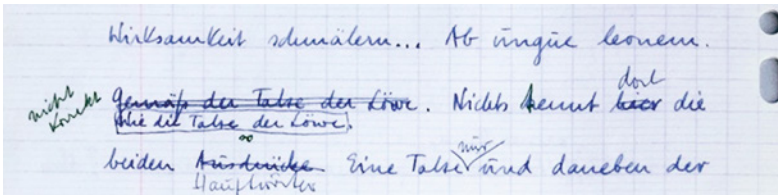 Wirksamkeit schmälern... Ab ungue leonem.
nicht korrekt
Gemäß der Tatze der Löwe. Nichts trennt hier dort die
Wie die Tatze der Löwe.
beiden Ausdrücke Hauptwörter. Eine Tatze nur und daneben der